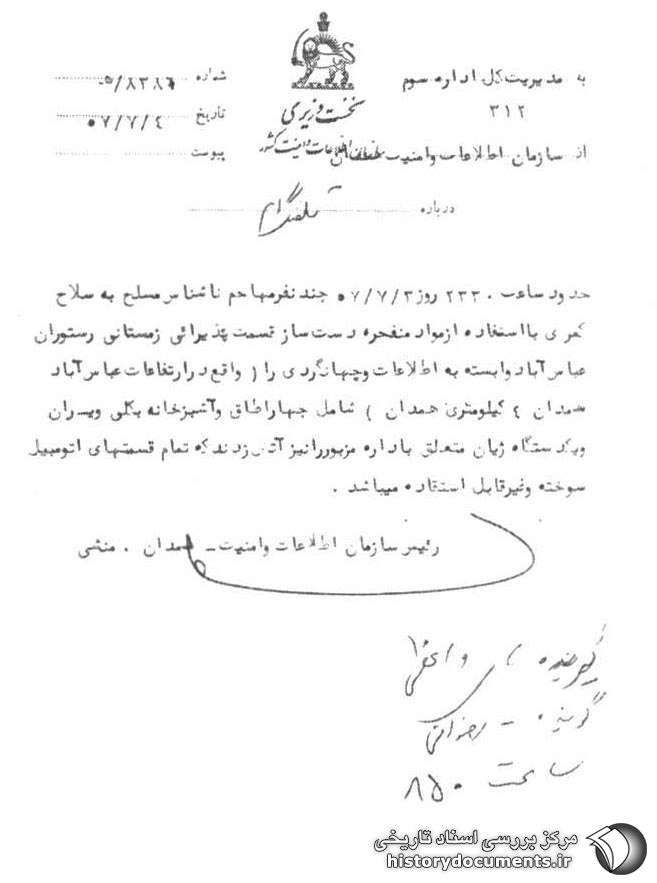 به مدیریت کل اداره سوم
۳۱۲
از سازمان اطلاعات وامنیت همدان
نخست وزیری
سازمان اطلاعات و امنیت کشور
شماره ۵/۸۳۸۶
تاریخ ۵۷/۷/۴
پیوست
درباره تلفنگرام
حدود ساعت ۲۳۳۰ روز ۵۷/۷/۳ چند نفر مهاجم ناشناس مسلح به سلاح
کمری با استفاده ازمواد منفجره دست ساز قسمت پذیرائی زمستانی رستوران
عباس آباد وابسته به اطلاعات وجهانگردی را ( واقع درارتفاعات عباس آباد
همدان ۴ کیلومتری همدان ) شامل چهاراطاق وآشپزخانه بکلی ویران
ویکدستگاه ژیان متعلق باداره مزبوررانیز آتش زدند که تمام قسمتهای اتومبیل
سوخته وغیرقابل استفاده میباشد .
رئیس سازمان اطلاعات وامنیت ـ همدان . منشی
گیرنده
گوینده -
ساعت ۸۵۰
مرکز بررسی اسناد تاریخی
historydocuments.ir